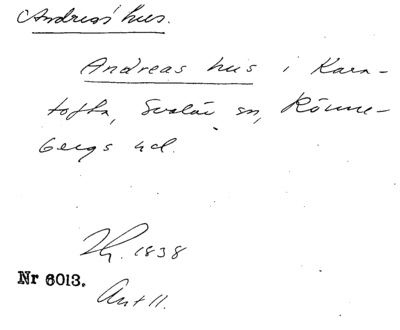 Andreas' hus.
Andreas hus i Kara-
tofta, Svalöv sn, Rönne-
bergs hd.
1838
Nr 6013.
Ant 11.